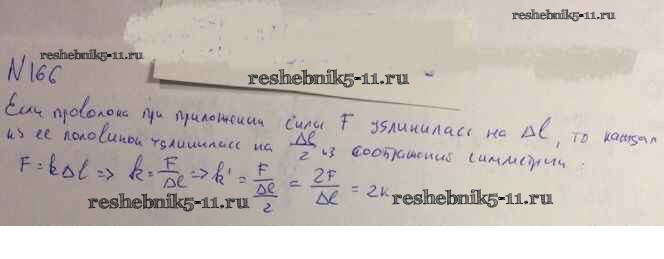 reshebnik5-11.ru
reshebnik5-11.ru
N166
reshebnik5-11.ru
Если проволока при приложении силы F удлинилась на Δl, то каждая
из ее половиной удлинилась на Δl/2 из соображений симметрии:
F = kΔl => k = F/Δl => k' = F/(Δl/2) = 2F/Δl = 2k
reshebnik5-11.ru
reshebnik5-11.ru